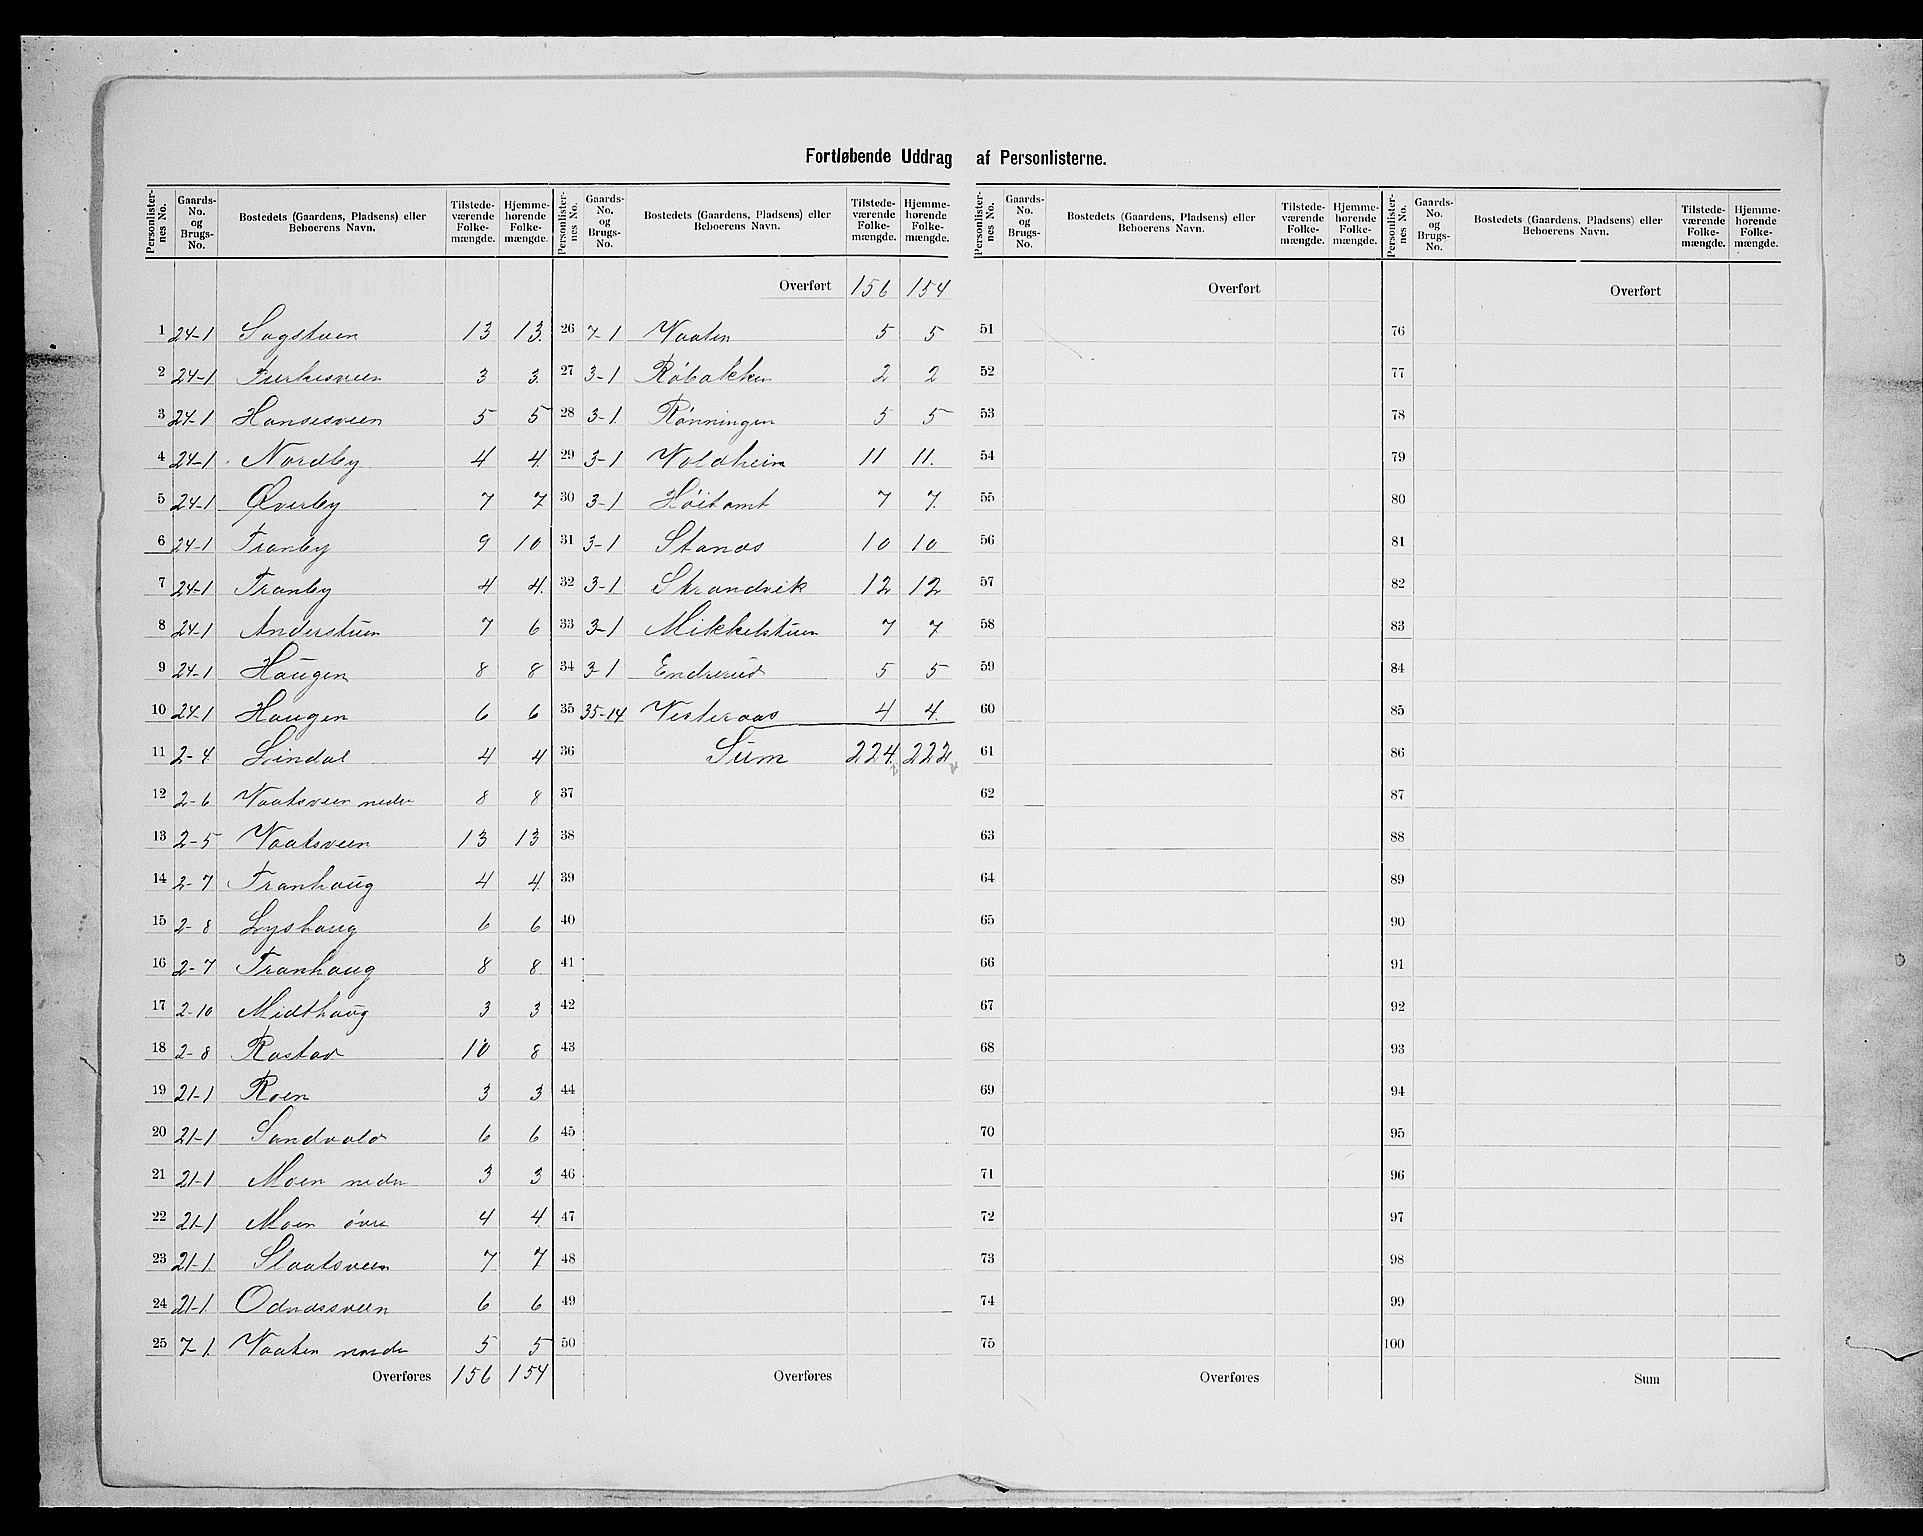 Fortløbende Uddrag af Personlisterne.
Personlister-nes No. Gaards-No. og Brugs-No. Bostedets (Gaardens, Pladsens) eller Beboerens Navn. Tilstede-værende Folke-mængde. Hjemme-hørende Folke-mængde. Personlister-nes No. Gaards-No. og Brugs-No. Bostedets (Gaardens, Pladsens) eller Beboerens Navn. Tilstede-værende Folke-mængde. Hjemme-hørende Folke-mængde. Personlister-nes No. Gaards-No. og Brugs-No. Bostedets (Gaardens, Pladsens) eller Beboerens Navn. Tilstede-værende Folke-mængde. Hjemme-hørende Folke-mængde. Personlister-nes No. Gaards-No. og Brugs-No. Bostedets (Gaardens, Pladsens) eller Beboerens Navn. Tilstede-værende Folke-mængde. Hjemme-hørende Folke-mængde.
Overført 156 154 Overført Overført
1 24-1 Sagstuen 13 13. 26 7-1 Vaaten 5 5 51 76
2 24-1 3 3. 27 3-1 Röbakken 2 2 52 77
3 24-1 Hansesveen 5 5 28 3-1. Rönningen 5 5 53 78
4 24-1 Nordby 4 4. 29 3-1 Voldheim 11 11. 54 79
5 24-1 Øverby 7 7 30 3-1 Höitomt 7 7. 55 80
6 24-1 Tranby 9 10 31 3-1 10 10 56 81
7 24-1 Tranby 4 4. 32 3-1 Strandvik 12 12 57 82
8 24-1 Anderstuen 7 6 33 3-1 Mikkelstuen 7 7 58 83
9 24-1 Haugen 8 8 34 3-1 Endrerud 5 5 59 84
10 24-1 Haugen 6 6 35 35-14 Vesteraas 4 4. 60 85
11 2-4 Lindal 4 4 36 Sum 224. 222 61 86
12 2-6 Vaatsveen nedre 8 8 37 62 87
13 2-5 Vaatsveen 13 13 38 63 88
14 2-7 Tranhaug 4 4 39 64 89
15 2-8 Lyshaug 6 6 40 65 90
16 2-7 Tranhaug 8 8 41 66 91
17 2-10 Midthaug 3 3 42 67 92
18 2-8 Rastad 10 8 43 68 93
19 21-1 Roen 3 3 44 69 94
20 21-1 Sandvold 6 6 45 70 95
21 21-1 Moen nedre 3 3 46 71 96
22 21-1 Moen övre 4 4 47 72 97
23 21-1. Slaatsveen 7 7 48 73 98
24 21-1. Odnæssveen 6 6 49 74 99
25 7-1. Vaaten 5 5 50 75 100
Overføres 156 154 Overføres Overføres Sum